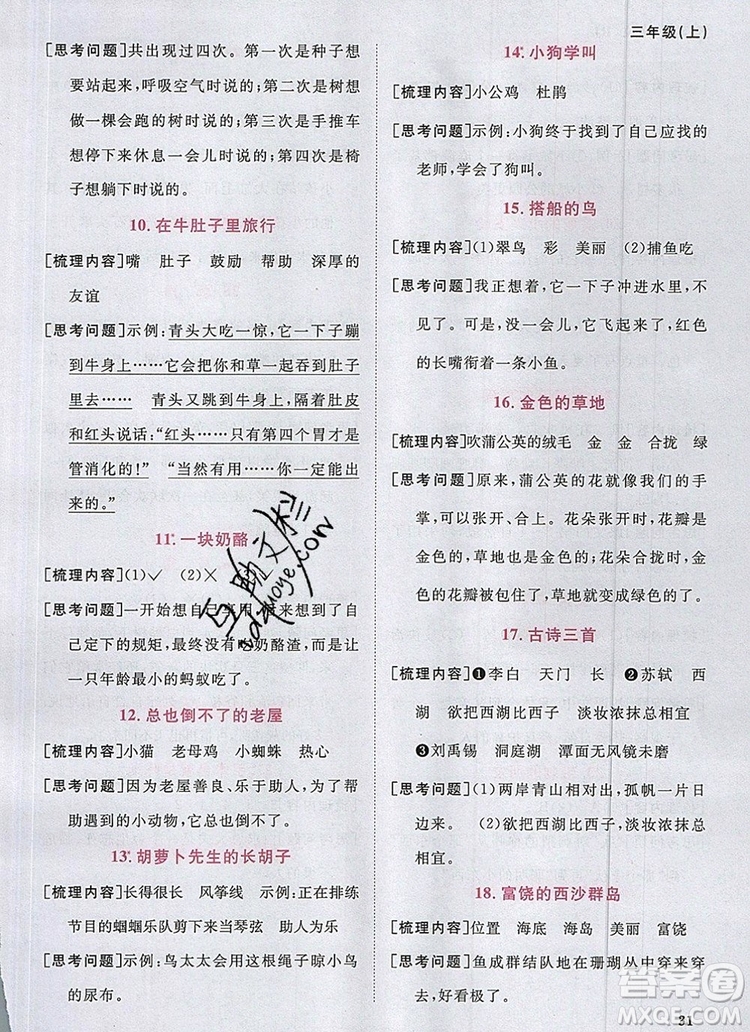 三年级(上)
[思考问题]共出现过四次。第一次是房子想
要站起来,呼吸空气时说的;第二次是树想
做一棵会走的树时说的;第三次是手推车
想停下来待一会儿时说的;第四次是椅
子想躺下时说的。
10. 在牛肚子里旅行
[梳理内容]嘴 肚子 鼓励 帮助 深厚的
友谊
[思考问题]示例:青头大吃一惊,它一下子蹦
到牛身上……它会和草一起吞到肚子
里去…… 青头又跳到牛身上,隔着肚皮
和红头说话:“红头……只有第四个胃才是
管消化的!” “当然有用……你一定能出
来的。”
11. 一块奶酪
[梳理内容](1)✓ (2)×
[思考问题]一开始想自己享用,后来想到了自
己定下的规矩,最终没有吃奶酪渣,而是让
一只年龄最小的蚂蚁吃了。
12. 总也倒不了的老屋
[梳理内容]小猫 老母鸡 小蜘蛛 热心
[思考问题]因为老屋善良、乐于助人,为了帮
助遇到的小动物,它总也倒不了。
13. 胡萝卜先生的长胡子
[梳理内容]长得很长 风筝线 示例:正在排练
节目的蝈蝈乐队剪下来当琴弦 助人为乐
[思考问题]示例:鸟太太会用这根绳子晾小鸟
的尿布。
14. 小狗学叫
[梳理内容]小公鸡 杜鹃
[思考问题]示例:小狗终于找到了自己应找的
老师,学会了狗叫。
15. 搭船的鸟
[梳理内容](1)翠鸟 彩 美丽 (2)捕鱼吃
[思考问题]我正想着,它一下子冲进水里,不
见了。可是,没一会儿,它飞起来了,红色
的长嘴衔着一条小鱼。
16. 金色的草地
[梳理内容]吹蒲公英的绒毛 金 金 合拢 绿
[思考问题]原来,蒲公英的花就像我们的手
掌,可以张开、合上。花朵张开时,花瓣是
金色的,草地也是金色的;花朵合拢时,金
色的花瓣被包住,草地就变成绿色的了。
17. 古诗三首
[梳理内容]❶李白 天门 长 ❷苏轼 西
湖 欲把西湖比西子 淡妆浓抹总相宜
❸刘禹锡 洞庭湖 潭面无风镜未磨
[思考问题](1)两岸青山相对出,孤帆一片日
边来。 (2)欲把西湖比西子,淡妆浓抹总
相宜。
18. 富饶的西沙群岛
[梳理内容]位置 海底 海岛 美丽 富饶
[思考问题]鱼成群结队地在珊瑚丛中穿来穿
去,好看极了。
31
互助文栏
答案圈
MXQE.COM